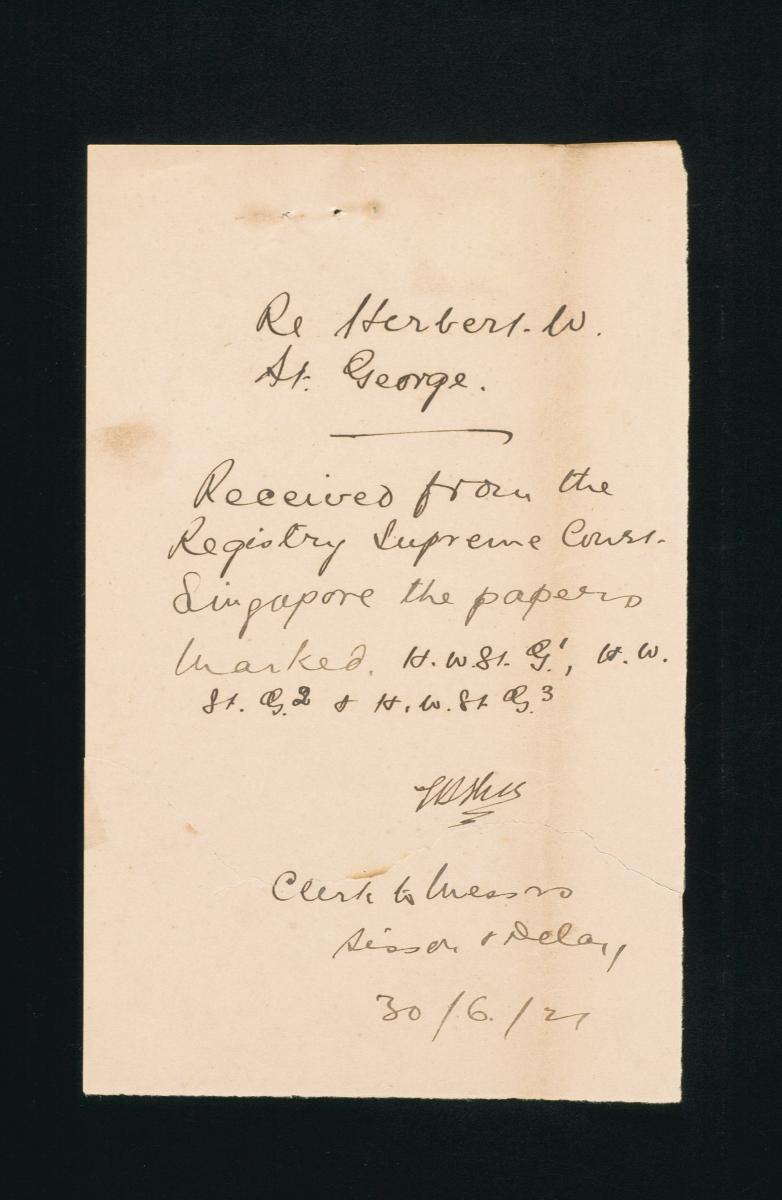 Re Herbert. W.
St. George.
Received from the
Registry Supreme Court.
Singapore the papers
Marked. H. W. St. G.1, H. W.
St. G.2 & H. W. St G.3
Clerk to Messrs
Sisson & Delay
30/6./21